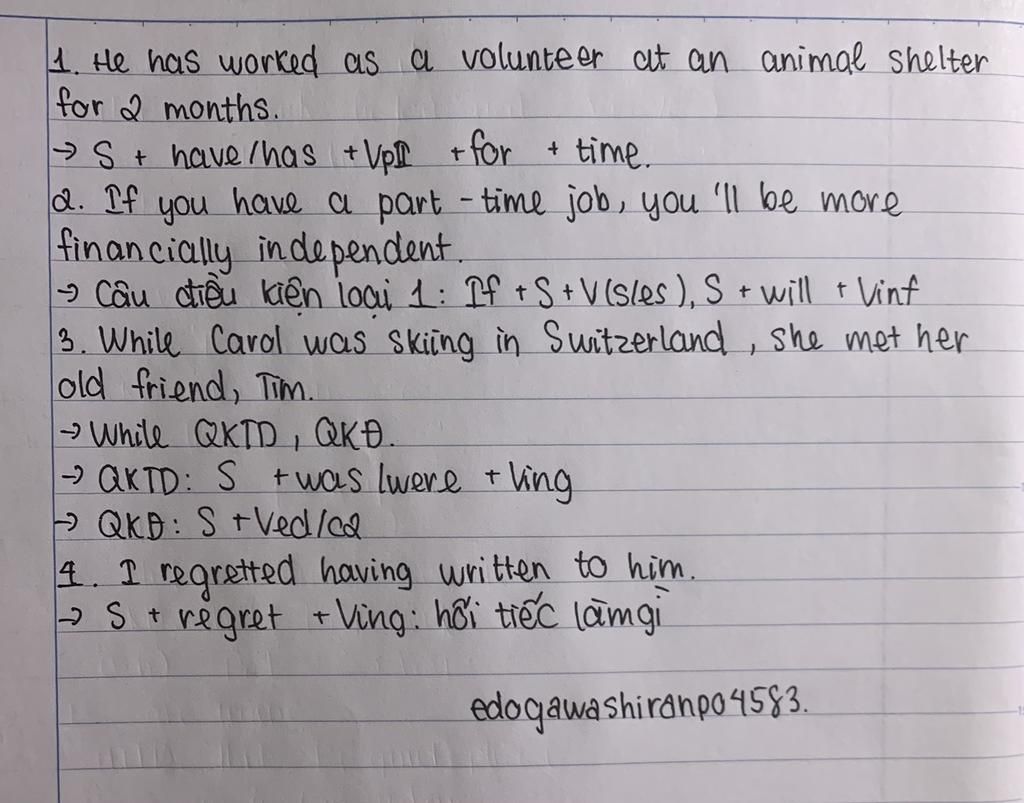 1. He has worked as a volunteer at an animal shelter
for 2 months.
→ S + have/has + VpII + for + time.
2. If you have a part-time job, you'll be more
financially independent.
→ Câu điều kiện loại 1: If + S + V(s/es), S + will + Vinf
3. While Carol was skiing in Switzerland, she met her
old friend, Tim.
→ While QKTD, QKĐ.
→ QKTD: S + was/were + Ving
→ QKĐ: S + Ved/c2
4. I regretted having written to him.
→ S + regret + Ving: hối tiếc làm gì
edogawashiranpo4583.